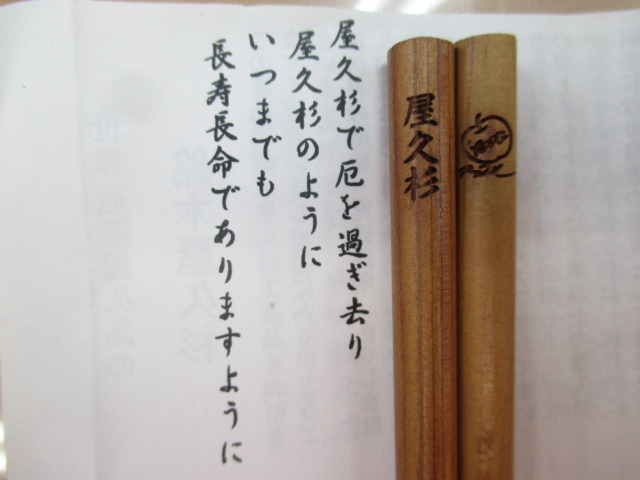 屋久杉で厄を過ぎ去り
屋久杉のように
いつまでも
長寿長命でありますように
屋久杉